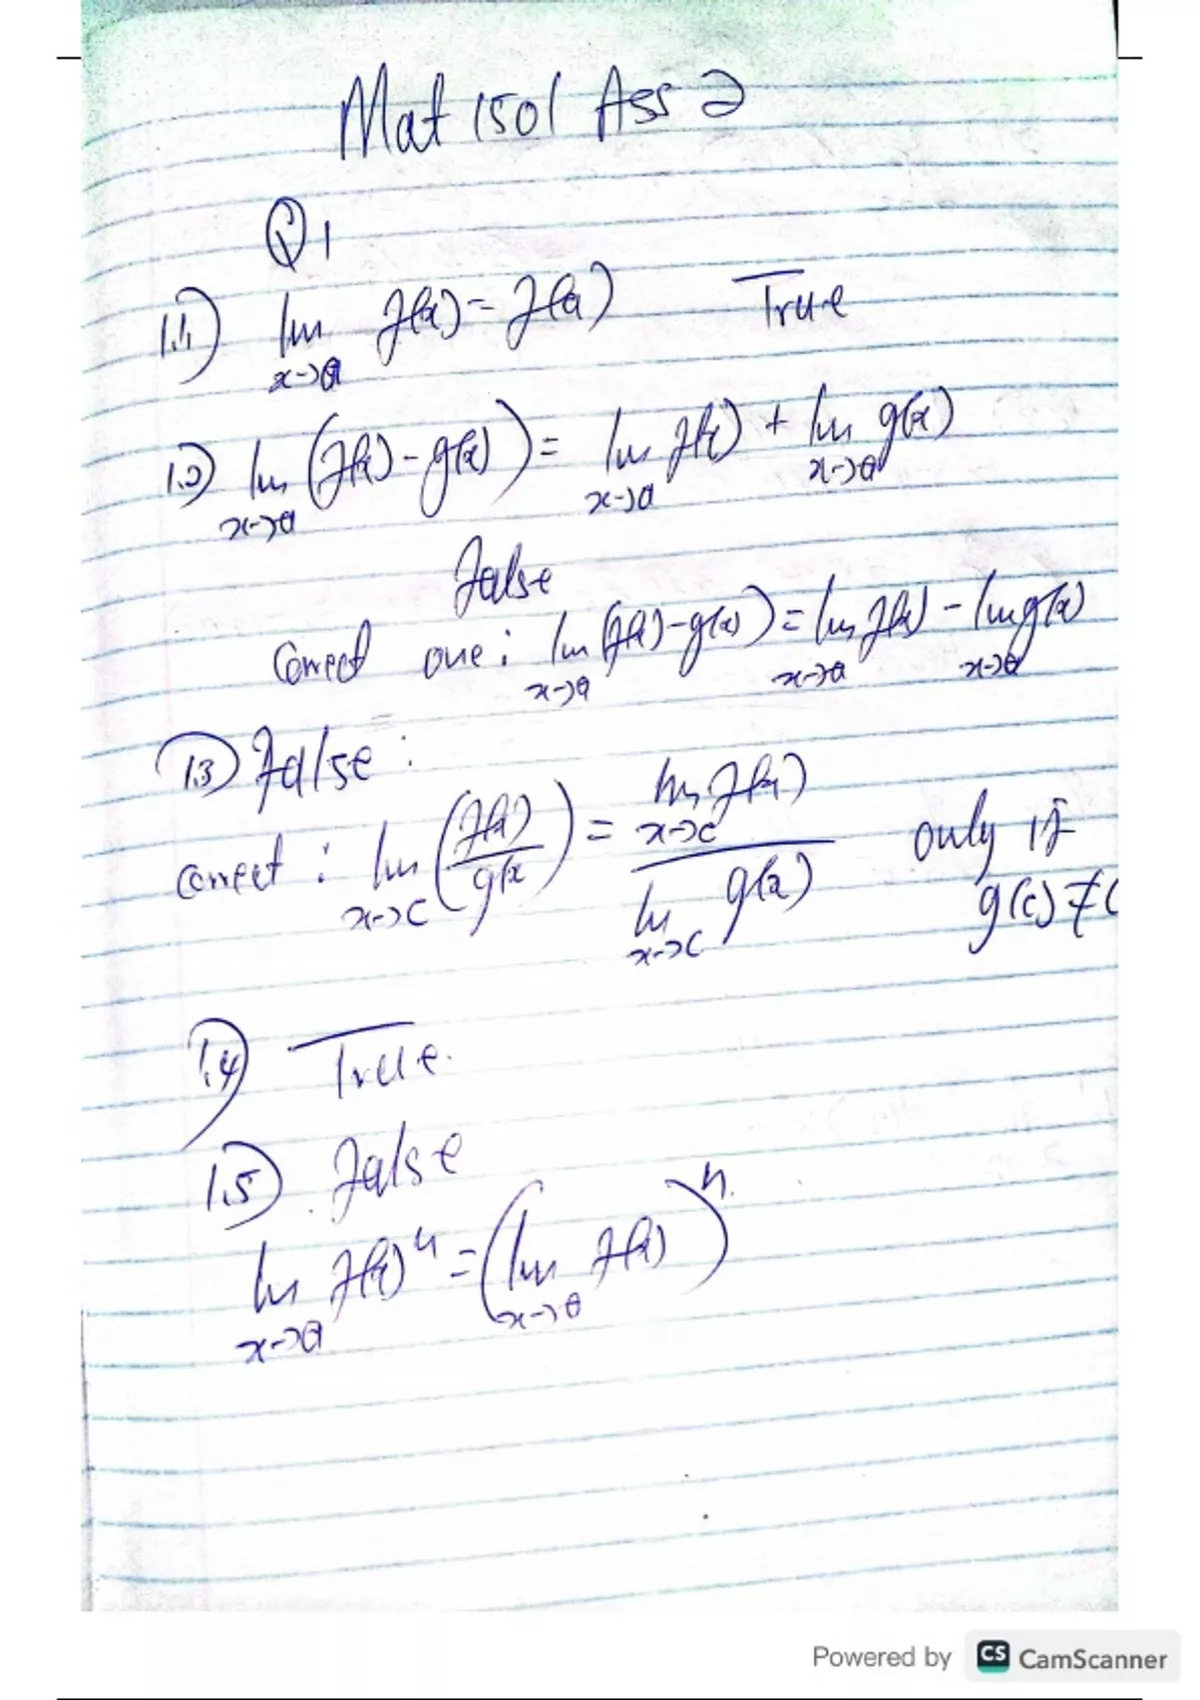 Mat 1501 Ass 2
Q1
1.1) lim x→a f(x) = f(a) True
1.2) lim x→a (f(x) - g(x)) = lim x→a f(x) + lim x→a g(x)
False
Correct one : lim x→a (f(x) - g(x)) = lim x→a f(x) - lim x→a g(x)
1.3) False :
correct : lim x→c (f(x)/g(x) = lim x→c f(x) / lim x→c g(x) only if
g(c) ≠
1.4) True.
1.5) False
lim x→a f(x)^n = (lim x→a f(x))^n.
Powered by CS CamScanner